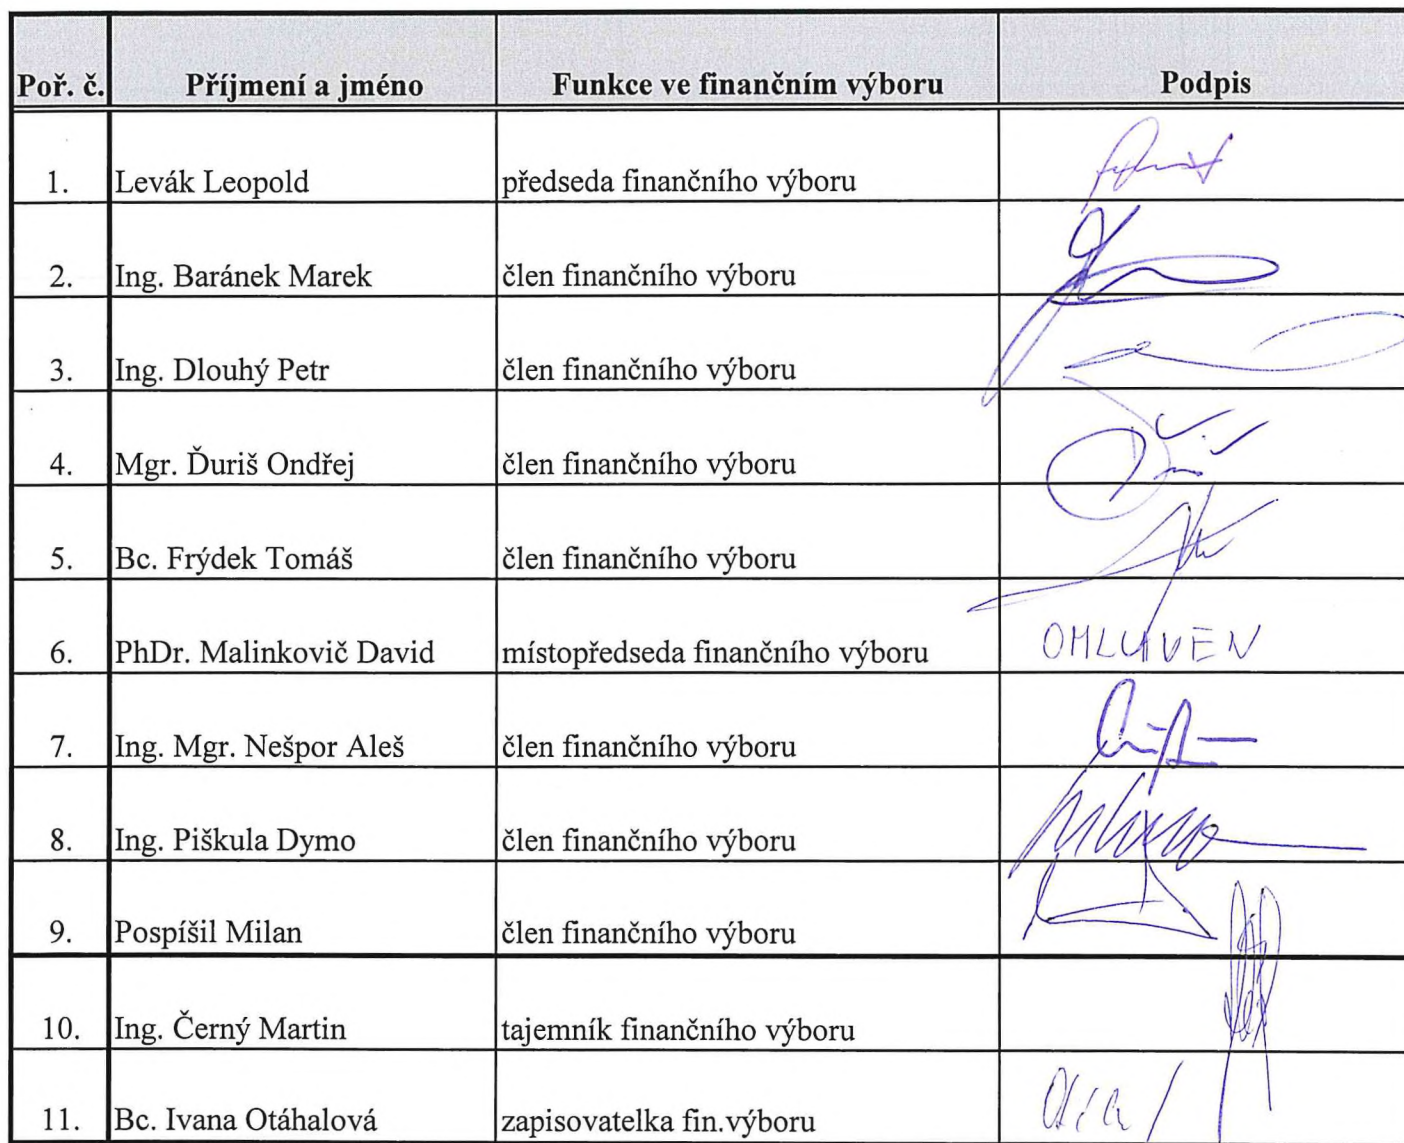 Poř. č. Příjmení a jméno Funkce ve finančním výboru Podpis
1. Levák Leopold předseda finančního výboru
2. Ing. Baránek Marek člen finančního výboru
3. Ing. Dlouhý Petr člen finančního výboru
4. Mgr. Ďuriš Ondřej člen finančního výboru
5. Bc. Frýdek Tomáš člen finančního výboru
6. PhDr. Malinkovič David místopředseda finančního výboru OMLUVEN
7. Ing. Mgr. Nešpor Aleš člen finančního výboru
8. Ing. Piškula Dymo člen finančního výboru
9. Pospíšil Milan člen finančního výboru
10. Ing. Černý Martin tajemník finančního výboru
11. Bc. Ivana Otáhalová zapisovatelka fin.výboru